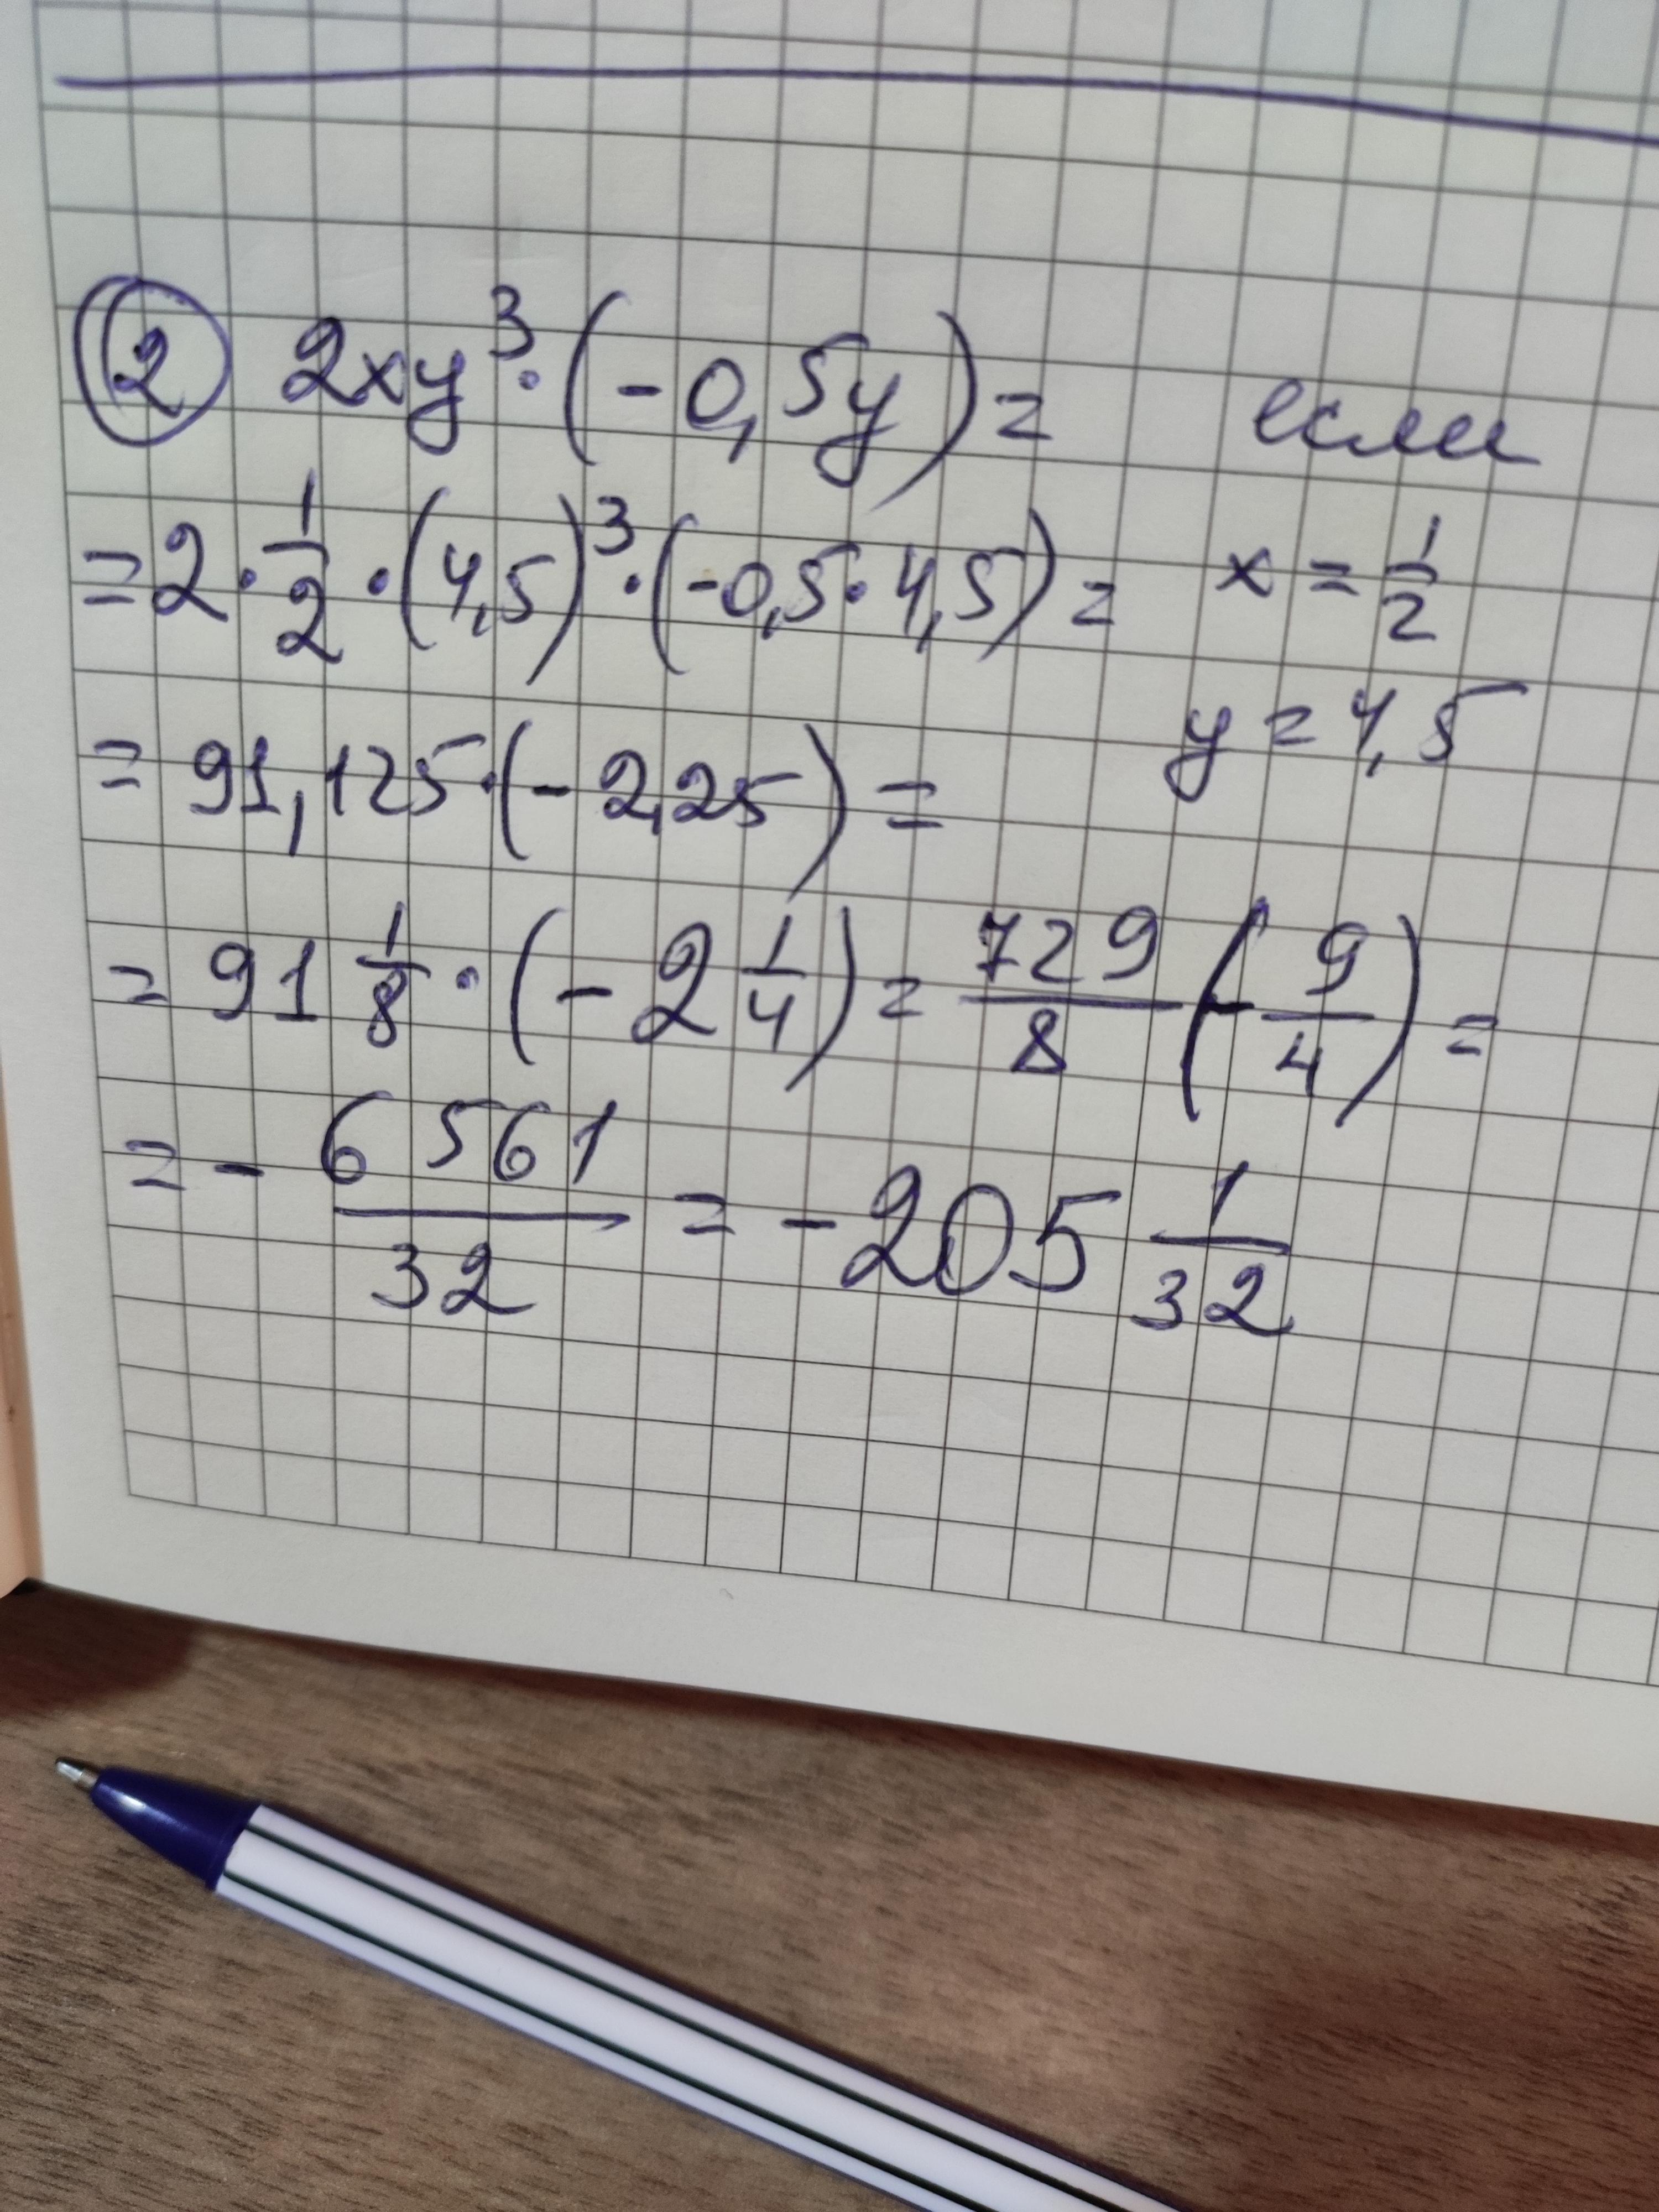 2 2xy³·(-0,5y)= если
=2·1/2·(4,5)³·(-0,5·4,5)= x=1/2
=91,125·(-2,25)= y=4,5
=91 1/8·(-2 1/4)=729/8(-9/4)=
=-6561/32=-205 1/32